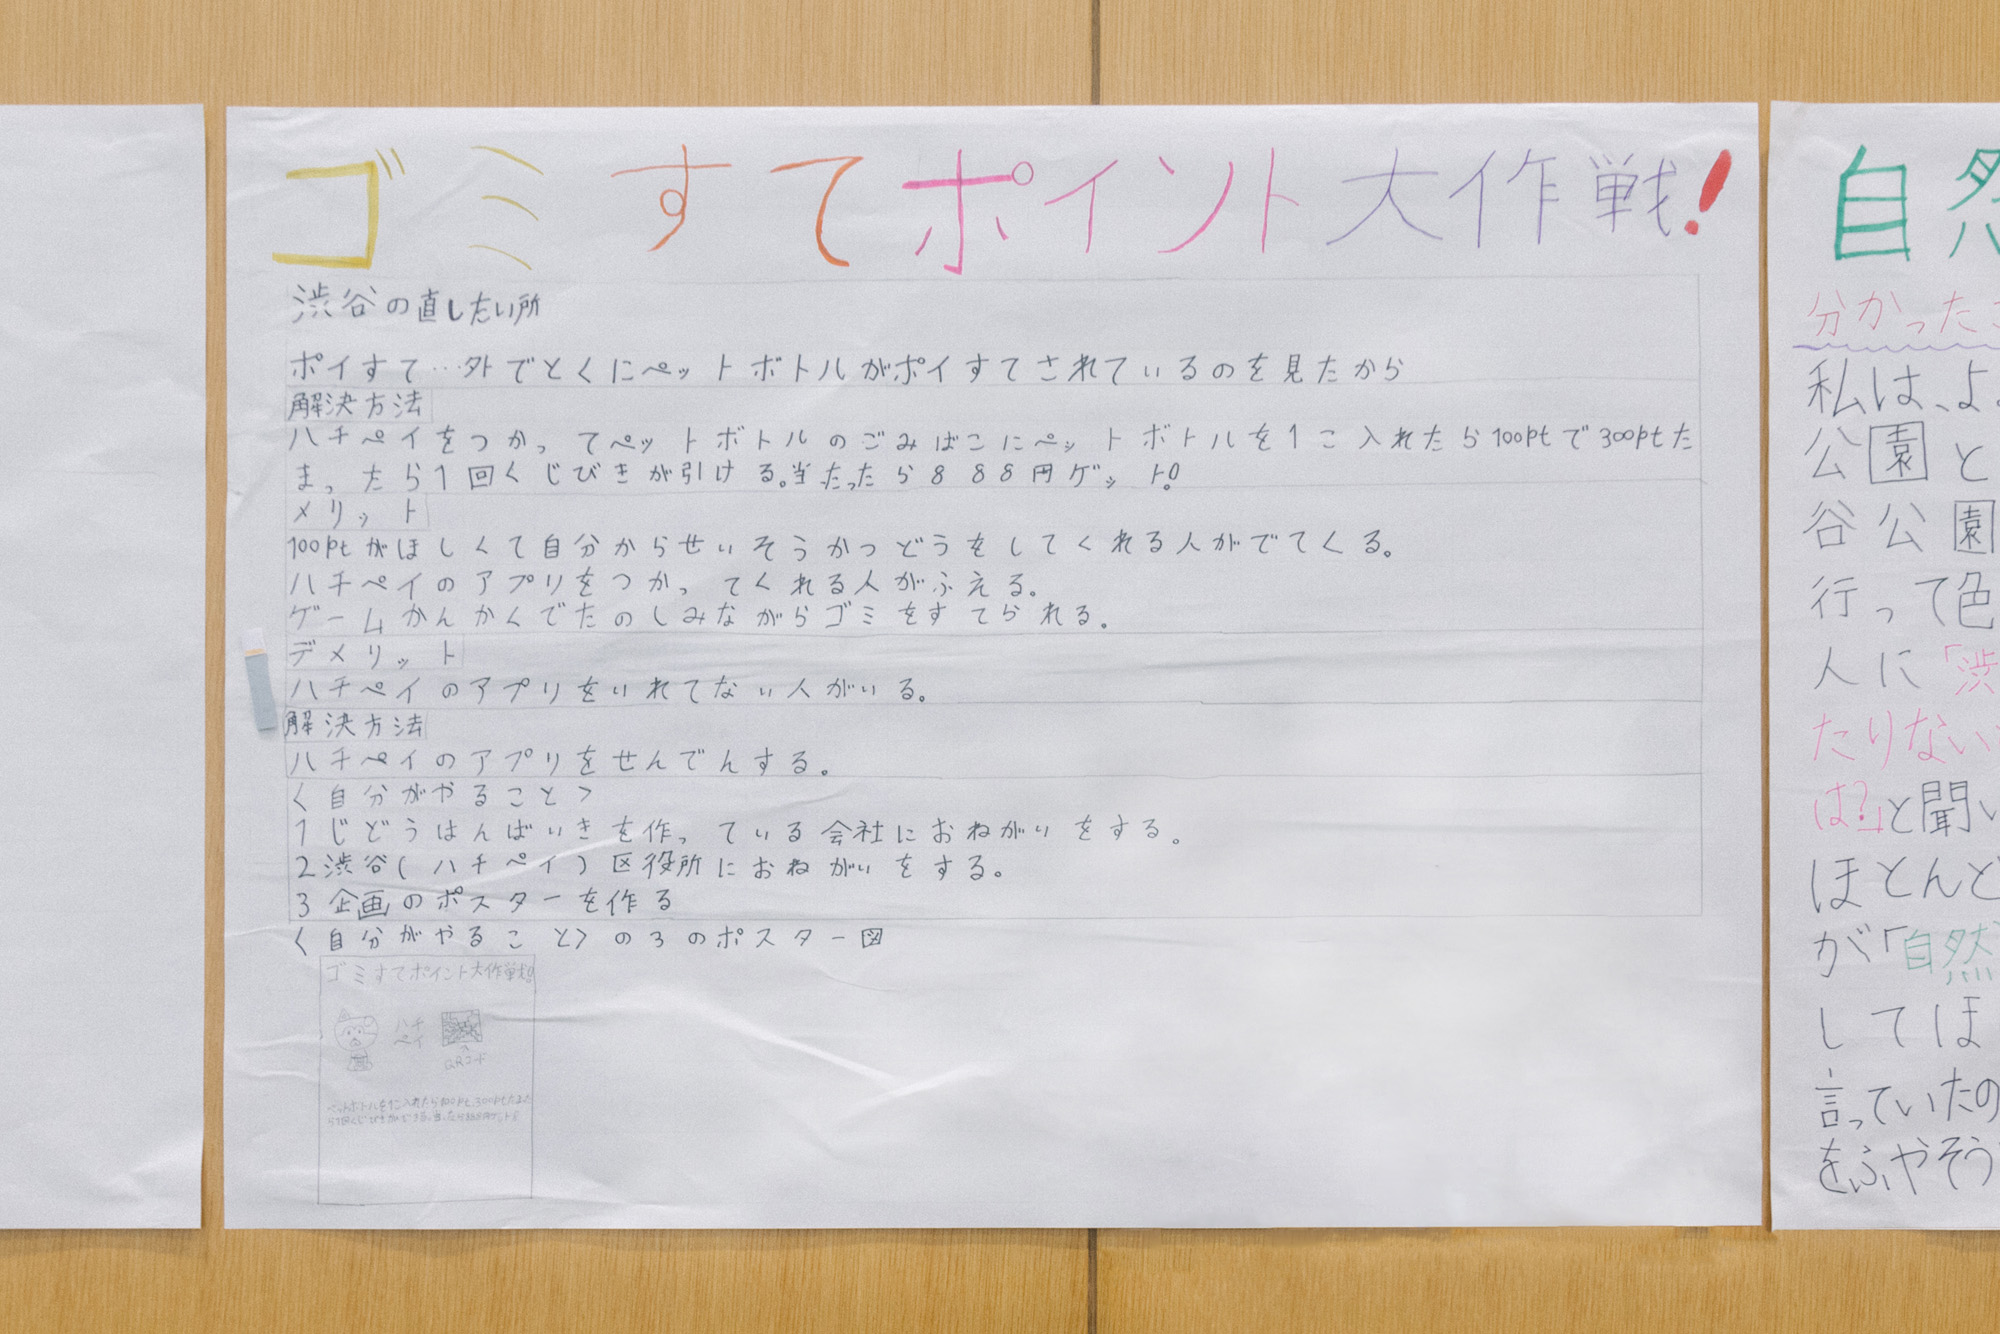 ゴミすてポイント大作戦!
渋谷の直したい所
ポイすて…外でとくにペットボトルがポイすてされているのを見たから
解決方法
ハチペイをつかってペットボトルのごみばこにペットボトルを1こ入れたら100ptで300ptた
まったら1回くじびきが引ける。当たったら888円ゲット!
メリット
100ptがほしくて自分からせいそうかつどうをしてくれる人がでてくる。
ハチペイのアプリをつかってくれる人がふえる。
ゲームかんかくでたのしみながらゴミをすてられる。
デメリット
ハチペイのアプリをいれてない人がいる。
解決方法
ハチペイのアプリをせんでんする。
<自分がやること>
1じどうはんばいきを作っている会社におねがいをする。
2渋谷(ハチペイ)区役所におねがいをする。
3企画のポスターを作る
<自分がやること>の3のポスター図
ゴミすてポイント大作戦!
ハチ
ペイ
QRコード
ペットボトルを1こ入れたら100pt、300ptたまた
自然
分かった
私は、よ
公園と
谷公園
行って色
人に「渋
たりない
は?」と聞い
ほとんど
が「自然
してほ
言っていたの
をふやそう